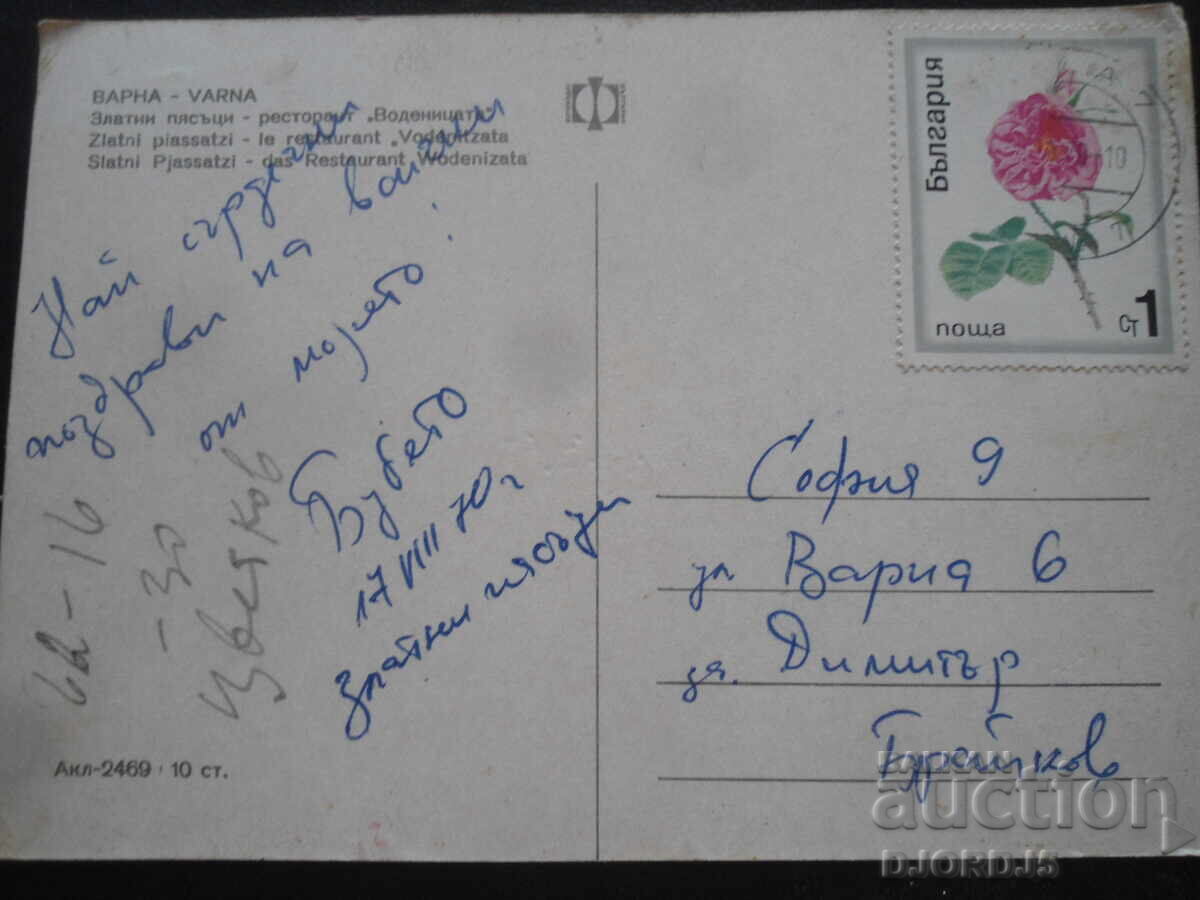 ВАРНА - VARNA
Златни пясъци - ресторант „Воденицата"
Zlatni piassatzi - le restaurant „Vodenitzata
Slatni Pjassatzi - das Restaurant Wodenizata
Най сърдечни
поздрави на всички
от морето!
17 VIII 70 г
Златни пясъци
62-16
-30
Цветков
Акл-2469 · 10 ст.
България
поща
ст 1
София 9
ул Варна 6
за. Димитър
BALKAN
auction
DJORDJ5